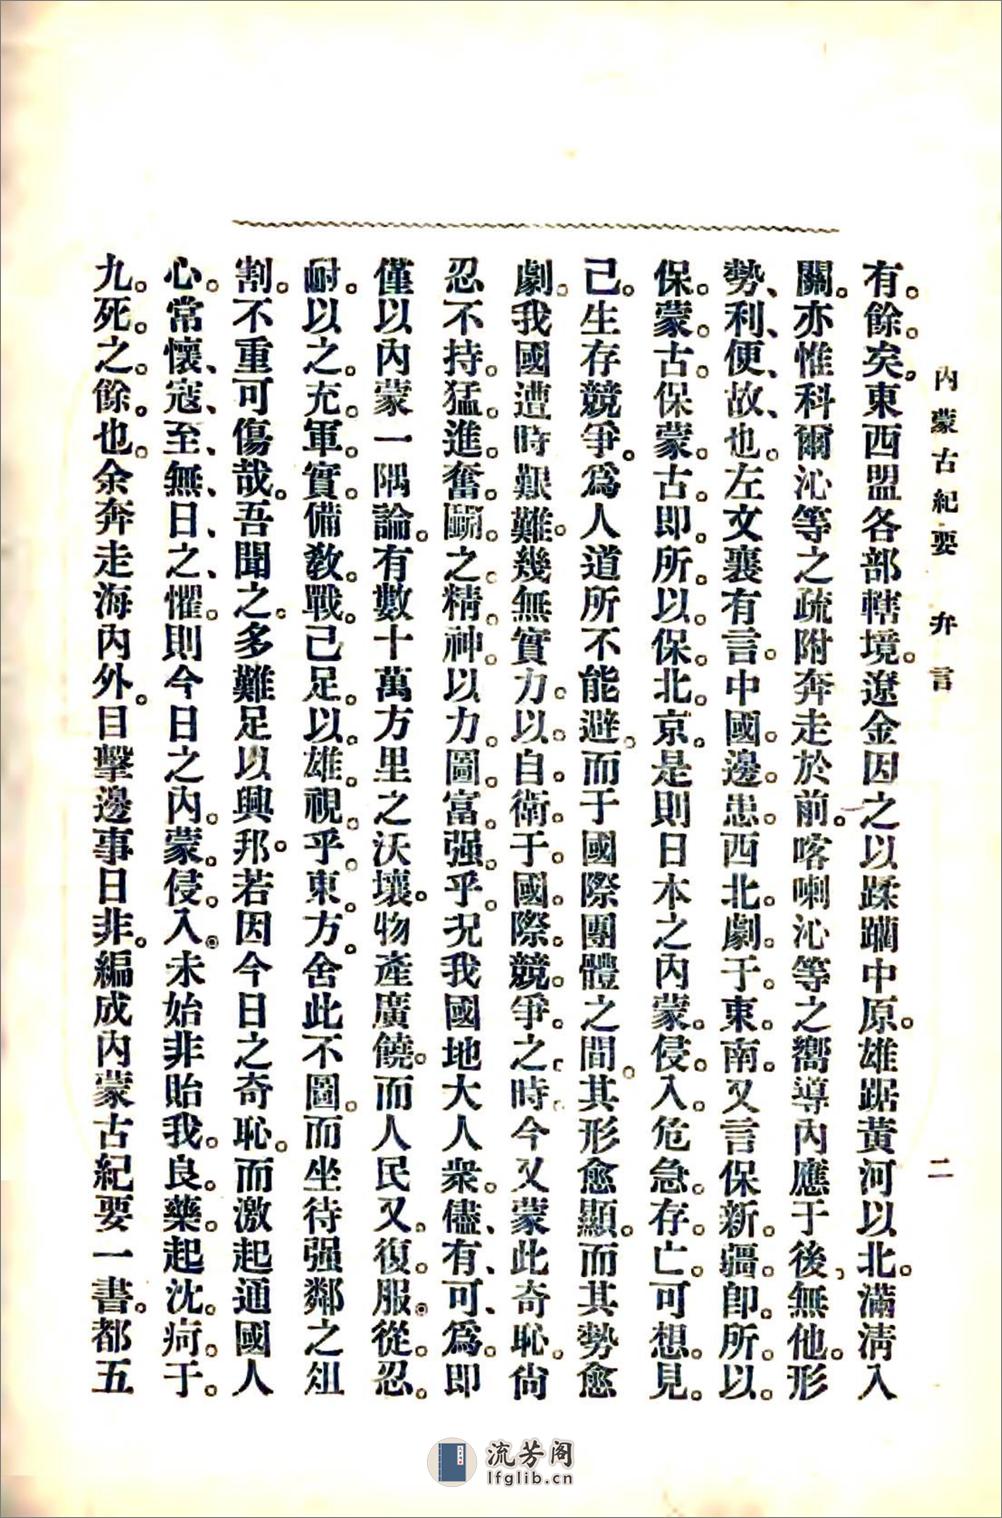 內蒙古紀要　弁言　二
有。餘。矣。東西盟各部轄境。遼金因之以蹂躪中原。雄踞黃河以北。滿淸入
關。亦惟科爾沁等之疏附奔走於前。喀喇沁等之嚮導內應于後、無他。形
勢、利、便、故、也。左文襄有言。中國。邊。患。西北。劇。于。東。南。又言保新。疆。卽。所。以。
保。蒙。古。保蒙。古。卽。所。以。保。北。京。是則日本之內蒙。侵。入。危。急。存。亡。可想。見。
己。生存競爭。爲人道所不能避。而于國際團體之間。其形愈顯。而其勢愈
劇。我國遭時艱難。幾無實力。以。自。衛。于。國。際。競。爭。之。時。今又蒙此奇恥。尙
忍不持。猛。進。奮。鬭。之。精。神。以力。圖。富。强。乎。況我國地大人衆。儘、有、可、爲。卽
僅以內蒙一隅論。有數十萬方里之沃壤。物產廣饒。而人民又。復。服。從。忍。
耐。以。之。充。軍。實。備。敎。戰。己。足。以。雄。視。乎。東。方。舍此不圖。而坐待强鄰之俎
割。不重可傷哉。吾聞之。多難足以興邦。若因今日之奇恥。而激起通國人
心。常懷、寇、至、無、日、之、懼。則今日之內。蒙。侵。入。未始非貽我。良。藥。起沈。疴。于。
九。死。之。餘。也。余奔走海內外。目擊邊事日非。編成內蒙古紀要一書。都五
流芳阁
lfglib.cn